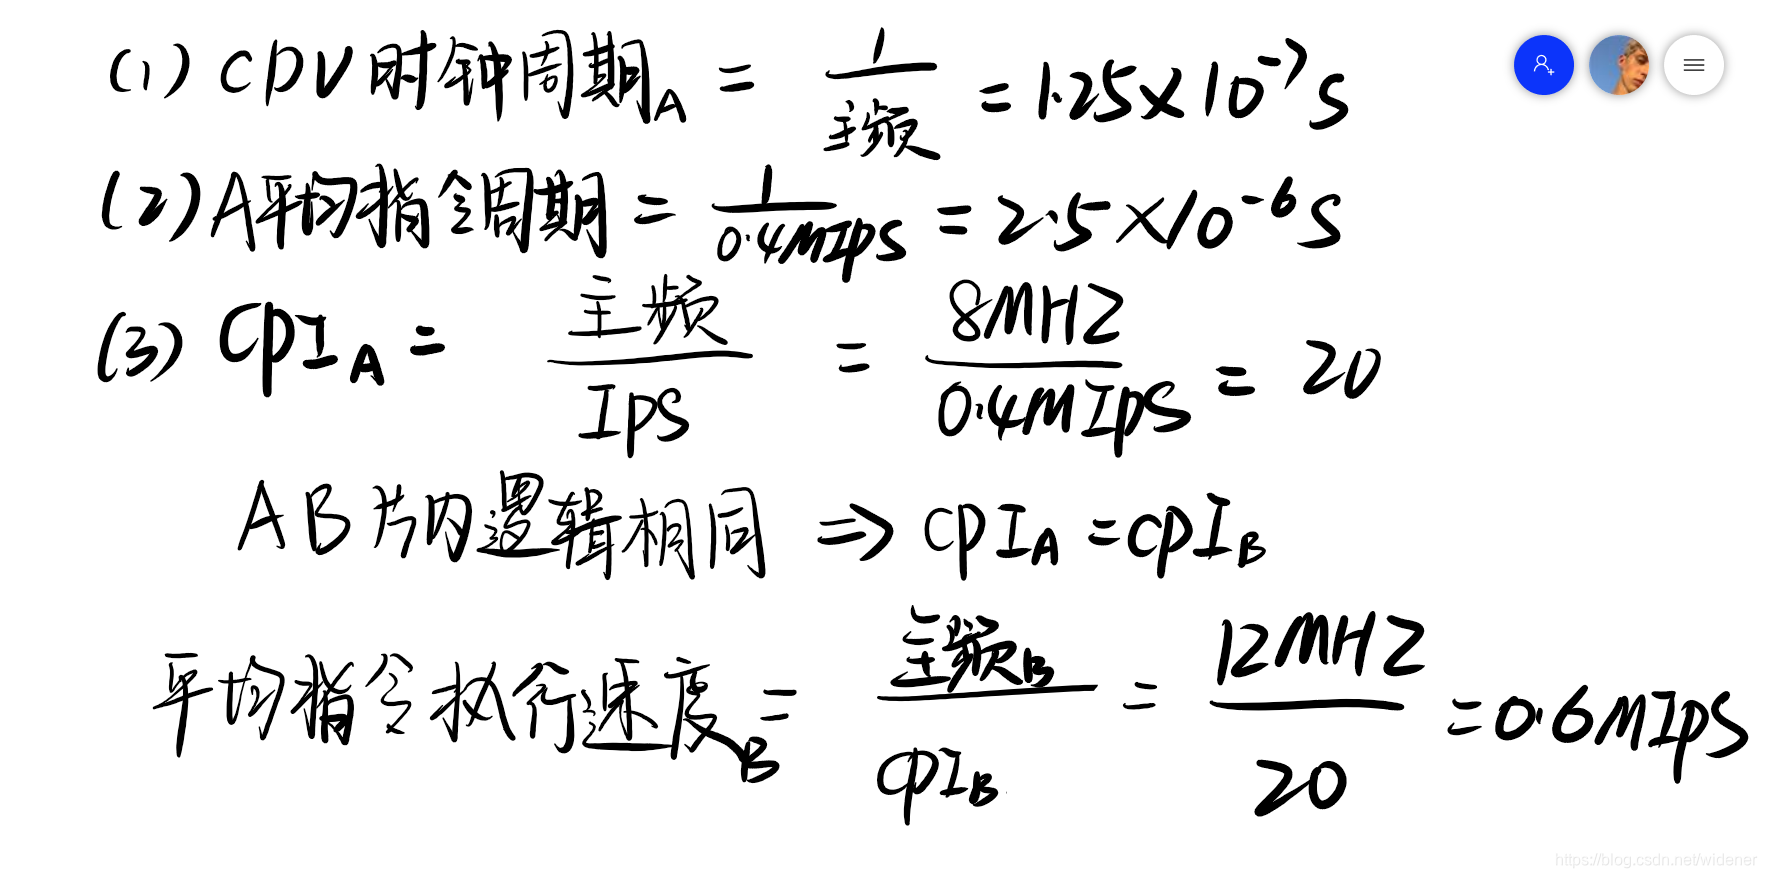 (1) CPU时钟周期A = 1/主频 = 1.25×10^-7 S
(2) A平均指令周期 = 1/0.4MIPS = 2.5×10^-6 S
(3) CPI_A = 主频/IPS = 8MHZ/0.4MIPS = 20
AB片内逻辑相同 => CPI_A = CPI_B
平均指令执行速度_B = 主频_B/CPI_B = 12MHZ/20 = 0.6MIPS
https://blog.csdn.net/widener